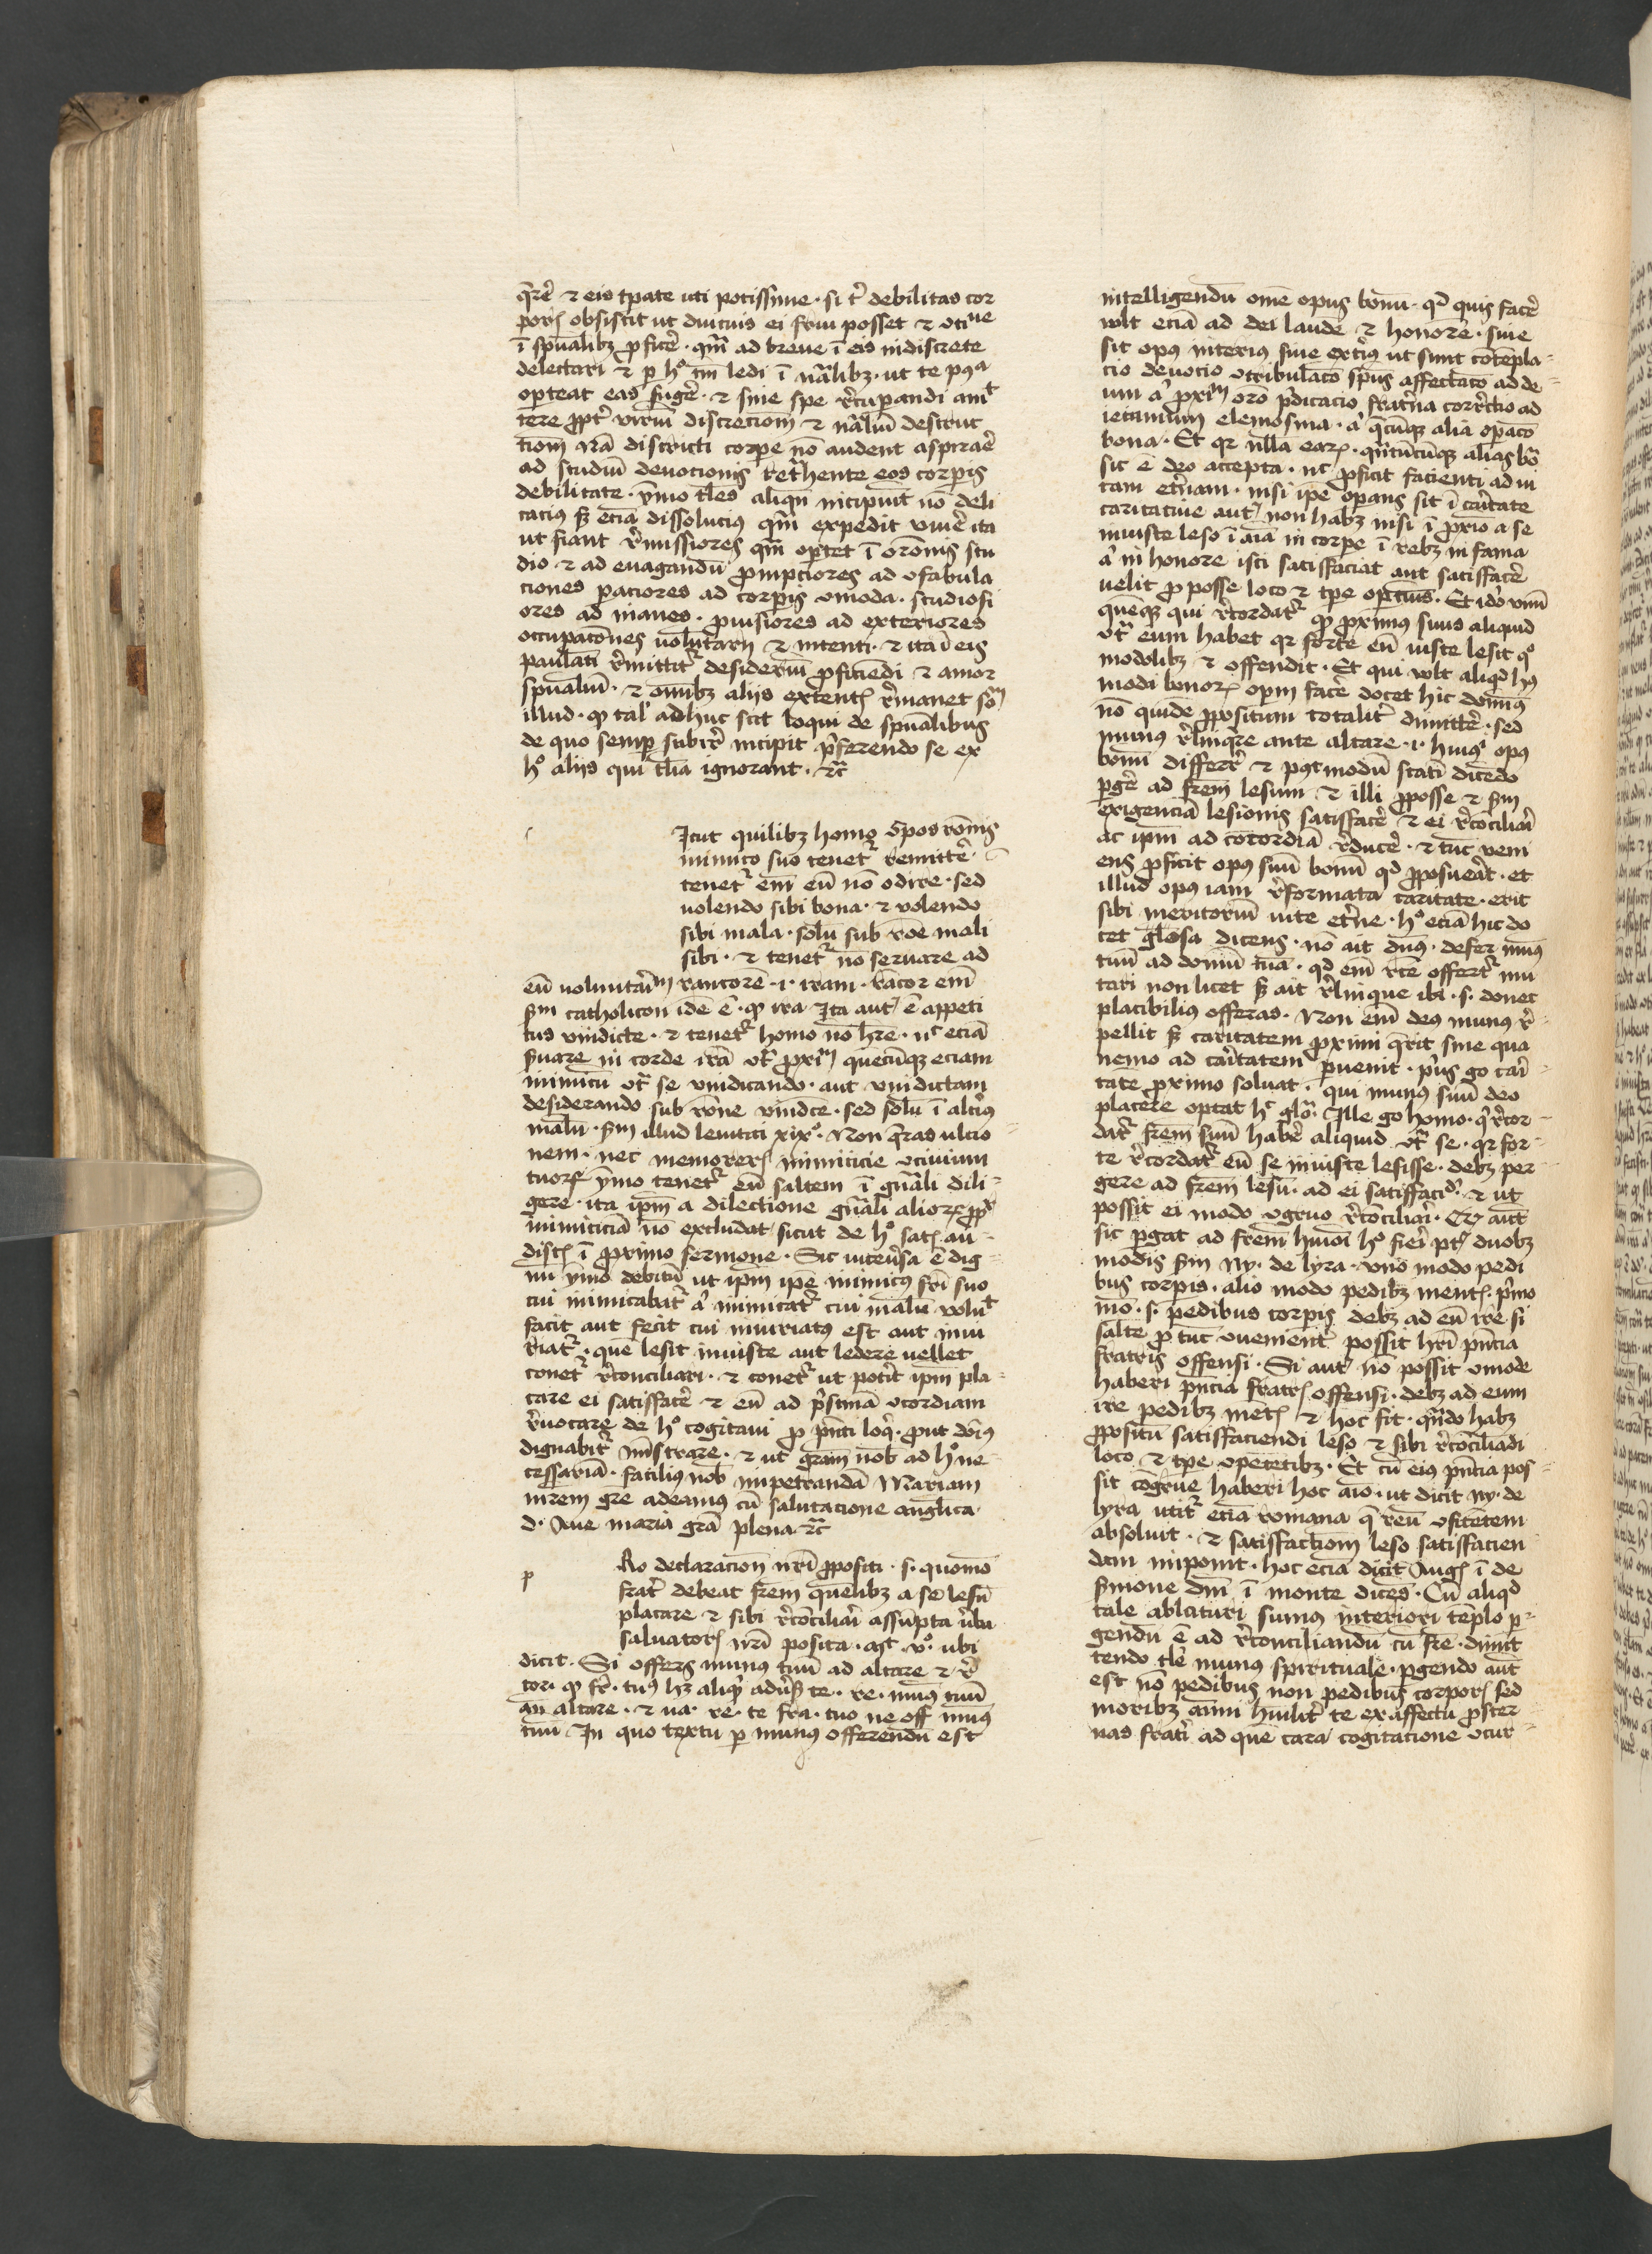 q̄rere ⁊ eis tp̄ate uti potissime · si t̄ debilitas cor
poris obsistit ut diucius ei frui posset ⁊ utine
ī spūalibꝫ ꝓficere · qm̄ ad breue ī eis indiscrete
delectari ⁊ ꝑ hº tm̄ ledi ī nāralibꝫ · ut te
opteat eas fugere · ⁊ sine spe r̄cupandi amit
tere ꝓpt̄ viriū discrecionem ⁊ nāliū destruc
tiom nā districti corpe nō audent aspirare
ad studiū deuocionis ret̄hente eos corpis
debilitate · ymo tales aliqn̄ incipiūt nō deli
cacius sꝫ eciā dissolucius qm̄ expedit viuere ita
ut fiant r̄missiores qm̄ oportet ī orōnis stu
dio ⁊ ad euagandū prompciores ad ofabula
ciones paciores ad corpis omoda · studiosi
ores ad inanes · prouisiores ad exteriores
occupatōnes uolūtarij ⁊ intenti · ⁊ ita ī eis
paulatī r̄mittitr̄ desideriū ꝓficiēdi ⁊ amor
spūaliū · ⁊ omībꝫ aliis r̄manet som
illud · ꝙ tal' adhuc scit loqui de spūalibus
de quo semp incipit p̄ferendo se ex
hº aliis qui tāia ignorant · ⁊c̄
Icut quilibꝫ homo
inimico suo tenetr̄ remittere
tenetr̄ em̄ eū nō odire · sed
uolendo sibi bona · ⁊ nolendo
sibi mala · solū sub rōe mali
sibi · ⁊ tenetr̄ nō seruare ad
eū voluntariū rancorē · i · iram · rācor em̄
sm̄ catholicon idē ē · ꝙ ira Ira aut' ē appeti
tus vindicte · ⁊ tenetr̄ homo nō hr̄e · nc̄ eciā
s̄uare in corde irā otr̄ proximū quecūqꝫ eciam
inimicū otr̄ se vindicando · aut vindictam
desiderando sub rōne vindicte · sed solū ī alterius
malū · sm̄ illud leuitici xixº · Non q̄ras ulcio
nem · nec memoreris inimicicie ciuium
tuorꝝ ymo tenetr̄ eū saltem ī gn̄ali dili
gere · ita ip̄m a dilectione gn̄ali aliorꝝ ꝓpt̄
inimiciciā nō excludat sicut de hº satis au
distis ī proximo sermone · Sic iuteūsa ē dig
nū ymo debitū ut ip̄m ip̄e inimicus fr̄i suo
cui inimicabatr̄ a' inimicatr̄ cui malū voluit
facit aut fecit cui iniuriatus est aut iniu
riatr̄ · quē lesit iniuste aut ledere uellet
conetr̄ r̄conciliari · ⁊ conetr̄ ut potit ip̄m pla
care ei satisfacere ⁊ eū ad p̄stinā ocordiam
r̄uocare de hº cogitaui ꝓ p̄nti loqi · put dn̄s
dignabitr̄ mīstrare · ⁊ ut grām nob̄ ad hº ne
cessariā · facilius nob̄ impetrandā Mariam
mr̄em grē adeamus cū salutacione anglīca
d · Aue maria grā plena ⁊c̄
p
Ro declaracione nr̄i ꝓpositi · s · quomō
frat̄ debeat fr̄em quēlibꝫ a se lesū
placare ⁊ sibi r̄cōciliari assūpta v̄ba
saluatoris nr̄i posita · mt̄ · vº · ubi
dicit · Si offers munus tuū ad altare ⁊ r̄
cor · ꝙ fr̄ · tuꝰ hꝫ aliqd adūsꝰ te · re · mūs tuū
an altare · ⁊ ua · re · te fra · tuo ne off mūs
tuū In quo textu ꝑ munus offerendū est
intelligendū omē opus bonū · qd quis facere
wlt eciā ad dei laudē ⁊ honorē · siue
sit opus interius siue exterius ut sunt cōtēpla
cio deuocio otribulatō spūs affectatō ad de
um a' proximū orō p̄dicacio frat̄na corr̄ctio ad
ieiunium elemosina · a' q̄cūqꝫ alia opacō
bona · Et qr nulla earꝝ · qn̄tūcūqꝫ alias bōa
sit ē deo accepta · nc̄ ꝓficit facienti ad ui
tam et̄nam · nisi ip̄e opans sit ī cāritate
caritatiue aut' non habꝫ nisi ī proxio a se
iniuste leso ī aīa in corpe ī rebꝫ in fama
a' in honore isti satisfaciat aut satisfacere
uelit ꝓ posse loco ⁊ tpe optuis · Et ido vnū
quēqꝫ qui r̄cordatr̄ ꝙ proximus suus aliquid
otr̄ eum habet qr forte eū iuste lesit qo
modolibꝫ ⁊ offendit · Et qui wlt aliqd hꝰ
modi bonorꝝ opm facere docet hic domīus
nō quidē ꝓpositum totalit̄ dimittere · sed
munus r̄linqre ante altare · i · huiꝰ opus
bonū differre ⁊ pꝰtmodū statī dicēdo
pgere ad fr̄em lesum ⁊ illi ꝓposse ⁊ sm̄
exigenciā lesionis satisfacere ⁊ ei r̄cōciliari
ac ipm̄ ad cōcordiā r̄ducere · ⁊ tūc veni
ens ꝓficit opus suū bonū qd ꝓposuerat · et
illud opus iam r̄formata caritate · erit
sibi meritoriū uite et̄ne · hº eciā hic do
cet glosa dicens · nō ait dn̄s · defer mūs
tuū ad domū tuā · qd em̄ r̄cte offertr̄ mu
tari non licet sꝫ ait r̄linque ibi · s · donec
placibilius offeras · Non em̄ deus munus r̄
pellit sꝫ caritatem proximi q̄rit sine qua
nemo ad cāritatem puenit · p̄us go cari
tatē proximo soluat · qui munus suū deo
placere optat hc̄ glo · Ille go homo · qi r̄cor
datr̄ fr̄em suū habere aliquid otr̄ se · qr for
te r̄cordatr̄ eū se iniuste lesisse · debꝫ per
gere ad fr̄em lesū · ad ei satisfaciendū ⁊ ut
possit ei modo ogruo r̄cōciliari · Qui aut
sic pgat ad fr̄em hmoī hº fieri pt̄ duobꝫ
modis sm̄ ny · de lyra · vno modo pedi
bus corpis · alio modo pedibꝫ mentis · p̄mo
mō · s · pedibus corpis debꝫ ad eū ire si
saltē ꝓ tūc ouenient̄ possit hr̄i p̄ncia
fratris offensi · Si aut' nō possit omode
haberi p̄ncia fratris offensi · debꝫ ad eum
ire pedibꝫ mētis ⁊ hoc fit · qn̄do habꝫ
ꝓpositū satisfaciendi leso ⁊ sibi r̄cōciliādi
loco ⁊ tpe opetētibꝫ · Et cū eius p̄ncia pos
sit cōgrue haberi hoc aīo · ut dicit ny · de
lyra utitr̄ eciā romana q̄ reū ofitētem
absoluit · ⁊ satisfactiom̄ leso satisfacien
dam imponit · hoc eciā dicit Augꝰ ī de
sermone dn̄i ī monte dicēs · Cū aliqd
tale ablaturi sumus interiori tēplo p
gendū ē ad r̄conciliandū cū fr̄e · dimit
tendo tāle munus spirituale · pgendo aut
est nō pedibus non pedibus corporis sed
moribꝫ aīmi humilit̄ te ex affectu proster
nas fratri ad quē cara cogitacione ocur